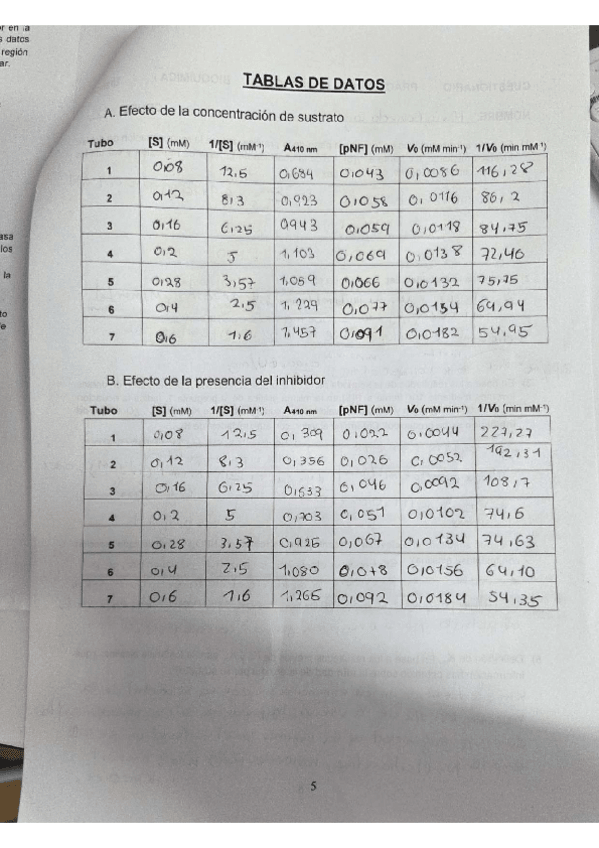 or en la
s datos
región
ar.
asa
los
la
to
e
TABLAS DE DATOS
A. Efecto de la concentración de sustrato
Tubo [S] (mM) 1/[S] (mM-1) A410 nm [pNF] (mM) Vo (mM min-1) 1/Vo (min mM-1)
1 0,08 12,5 0,684 0,043 0,0086 116,28
2 0,12 8,3 0,923 0,058 0,0116 86,2
3 0,16 6,25 0,943 0,059 0,0118 84,75
4 0,2 5 1,103 0,069 0,0138 72,46
5 0,28 3,57 1,059 0,066 0,0132 75,75
6 0,4 2,5 1,229 0,077 0,0154 64,94
7 0,6 1,6 1,457 0,091 0,0182 54,95
B. Efecto de la presencia del inhibidor
Tubo [S] (mM) 1/[S] (mM-1) A410 nm [pNF] (mM) Vo (mM min-1) 1/Vo (min mM-1)
1 0,08 12,5 0,309 0,022 0,0044 227,27
2 0,12 8,3 0,356 0,026 0,0052 192,31
3 0,16 6,25 0,633 0,046 0,0092 108,7
4 0,2 5 0,703 0,051 0,0102 74,6
5 0,28 3,57 0,925 0,067 0,0134 74,63
6 0,4 2,5 1,080 0,078 0,0156 64,10
7 0,6 1,6 1,265 0,092 0,0184 54,35
5